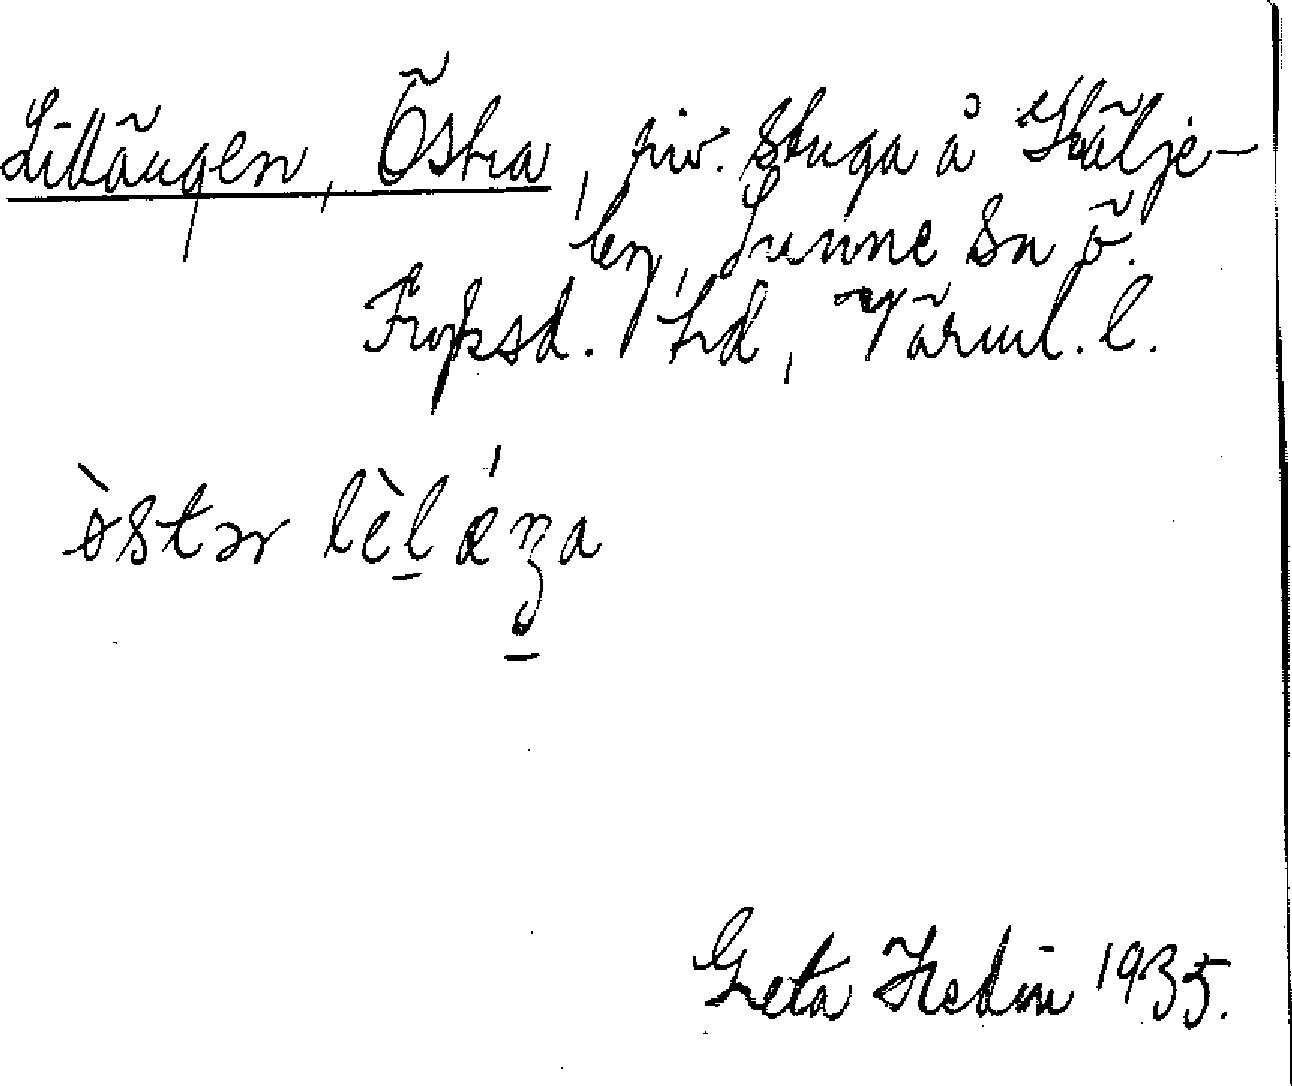 Lillängen, Östra, riv. stuga å Skälje-
ben, Sunne sn ö.
Fryksd. hd, Värml. l.
òstər lèlǽŋa
Greta Hedin 1935.